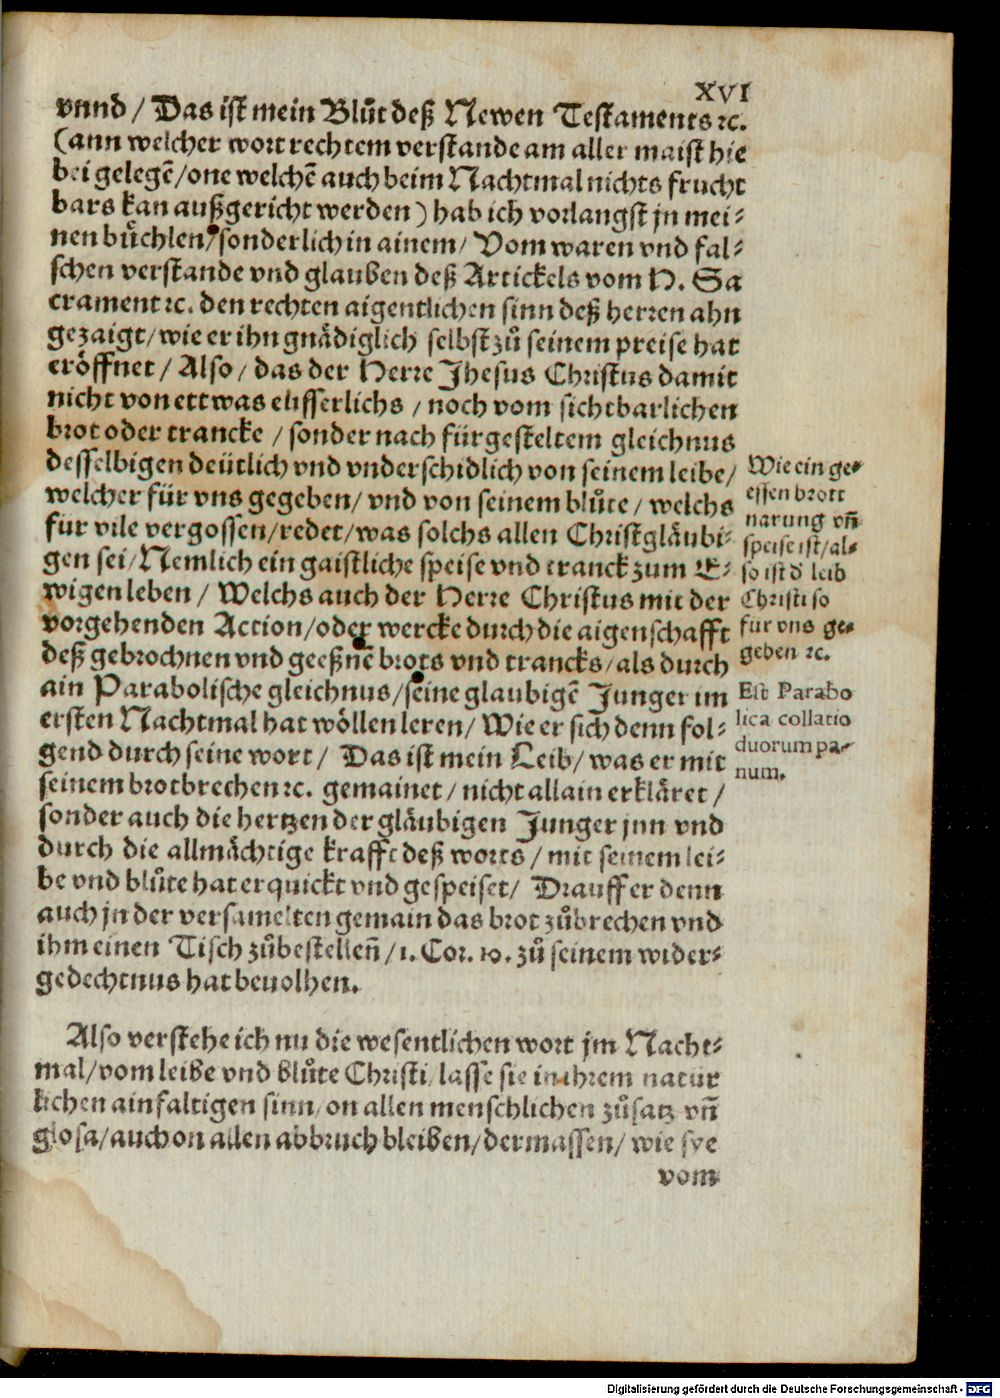 XVI
vnnd / Das ist mein Blůt deß Newen Testaments ꝛc.
(ann welcher wort rechtem verstande am aller maist hie
bei gelegē/one welchē auch beim Nachtmal nichts frucht
bars kan außgericht werden) hab ich vorlangst jn mei⸗
nen bůchlen/sonderlich in ainem/ Vom waren vnd fal⸗
schen verstande vnd glauben deß Artickels vom H. Sa
crament ꝛc. den rechten aigentlichen sinn deß herren ahn
gezaigt/wie er ihn gnädiglich selbst zů seinem preise hat
eröffnet / Also / das der Herre Jhesus Christus damit
nicht von ettwas eüsserlichs / noch vom sichtbarlichen
brot oder trancke / sonder nach fürgesteltem gleichnus
desselbigen deütlich vnd vnderschidlich von seinem leibe/
welcher für vns gegeben/ vnd von seinem blůte / welchs
für vile vergossen/redet/was solchs allen Christgläubi⸗
gen sei/Nemlich ein gaistliche speise vnd tranck zum E⸗
wigen leben / Welchs auch der Herre Christus mit der
vorgehenden Action/oder wercke durch die aigenschafft
deß gebrochnen vnd geeßnē brots vnd trancks/als durch
ain Parabolische gleichnus/seine glaubigē Junger im
ersten Nachtmal hat wöllen leren/ Wie er sich denn fol⸗
gend durch seine wort / Das ist mein Leib/ was er mit
seinem brotbrechen ꝛc. gemainet / nicht allain erkläret /
sonder auch die hertzen der gläubigen Junger jnn vnd
durch die allmächtige krafft deß worts / mit seinem lei⸗
be vnd blůte hat erquickt vnd gespeiset/ Drauff er denn
auch jn der versamelten gemain das brot zůbrechen vnd
ihm einen Tisch zůbestelleñ /1. Cor. 10. zů seinem wider⸗
gedechtnus hat beuolhen.
Also verstehe ich nu die wesentlichen wort jm Nacht⸗
mal/vom leibe vnd blůte Christi/lasse sie in ihrem natur
lichen ainfaltigen sinn/on allen menschlichen zůsatz vñ
glosa/auch on allen abbruch bleiben/dermassen/ wie sye
vom
Wie ein ge⸗
essen brott
narung vñ
speise ist/al⸗
so ist d' leib
Christi so
für vns ge⸗
geben ꝛc.
Est Parabo
lica collatio
duorum pa⸗
num.
Digitalisierung gefördert durch die Deutsche Forschungsgemeinschaft - DFG